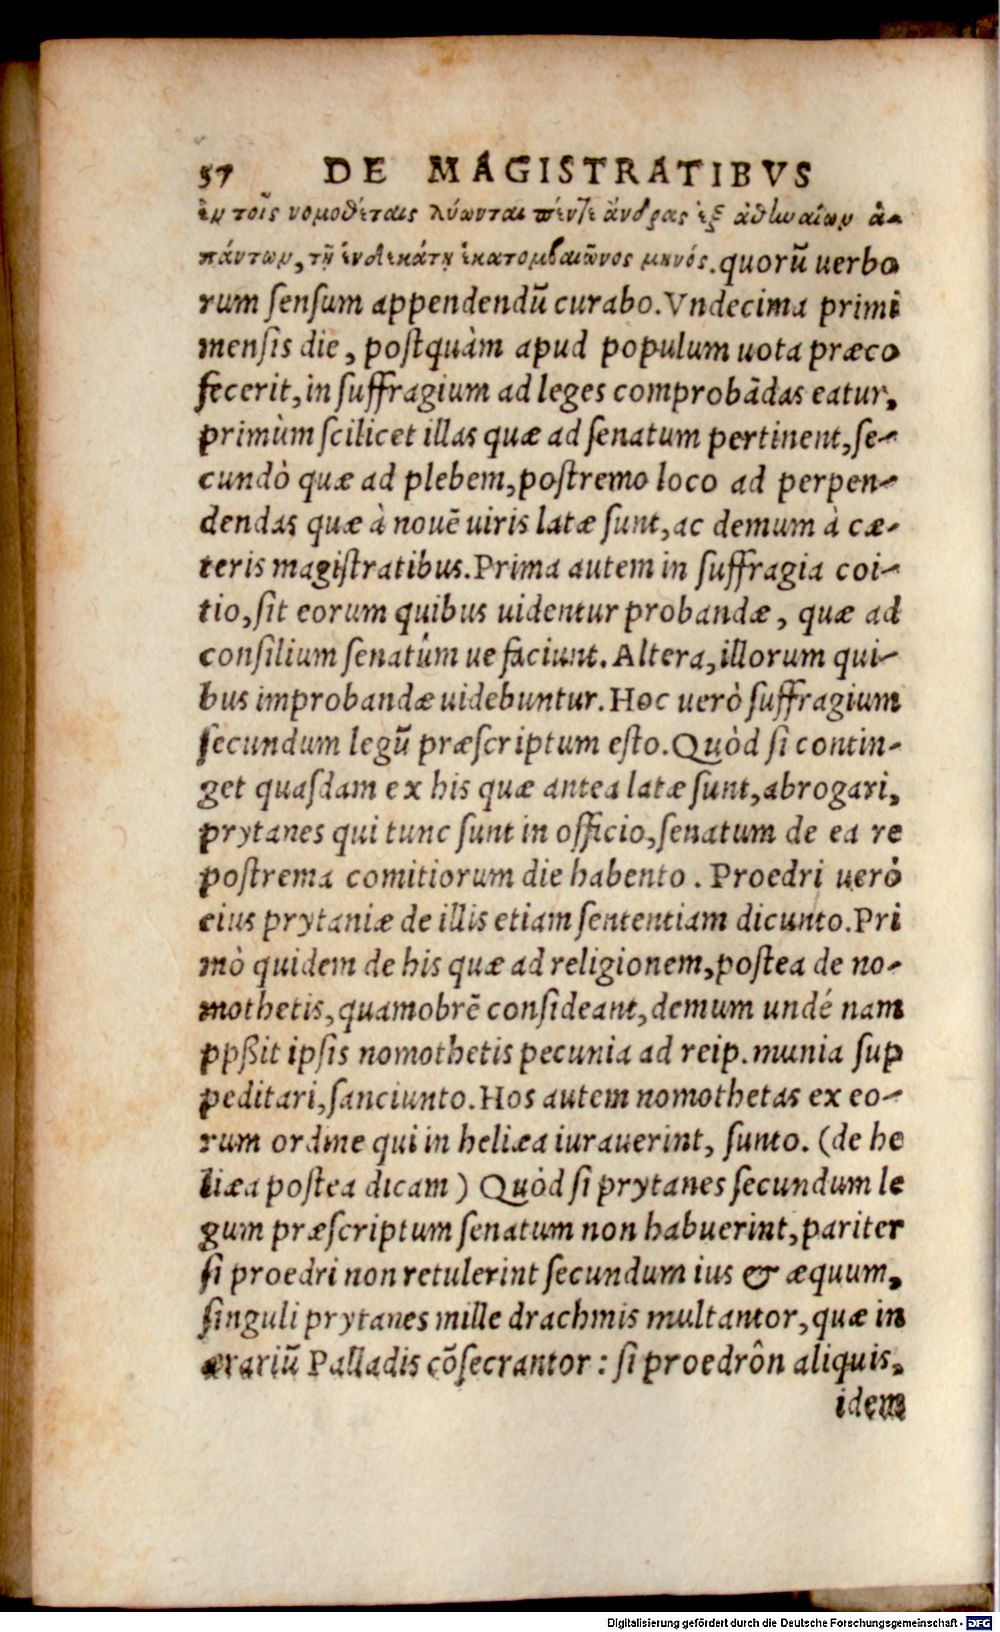 57 DE MAGISTRATIBVS
ἐν τοῖς νομοθέταις λύωνται πέντε ἄνδρας ἐξ ἀθηναίων ἁ-
πάντων, τῇ ἑνδεκάτῃ ἑκατομβαιῶνος μηνός. quorū uerbo
rum ſenſum appendendū curabo. Vndecima primi
menſis die, poſtquàm apud populum uota præco
fecerit, in ſuffragium ad leges comprobādas eatur,
primùm ſcilicet illas quæ ad ſenatum pertinent, ſe-
cundò quæ ad plebem, poſtremo loco ad perpen-
dendas quæ à nouē uiris latæ ſunt, ac demum à cæ-
teris magiſtratibus. Prima autem in ſuffragia coi-
tio, ſit eorum quibus uidentur probandæ, quæ ad
conſilium ſenatûm ue faciunt. Altera, illorum qui-
bus improbandæ uidebuntur. Hoc uerò ſuffragium
ſecundum legū præſcriptum eſto. Quòd ſi contin-
get quaſdam ex his quæ antea latæ ſunt, abrogari,
prytanes qui tunc ſunt in officio, ſenatum de ea re
poſtrema comitiorum die habento. Proedri uerò
eius prytaniæ de illis etiam ſententiam dicunto. Pri
mò quidem de his quæ ad religionem, poſtea de no-
mothetis, quamobrē conſideant, demum undé nam
ppßit ipſis nomothetis pecunia ad reip. munia ſup
peditari, ſanciunto. Hos autem nomothetas ex eo-
rum ordine qui in heliæa iurauerint, ſunto. (de he
liæa poſtea dicam) Quòd ſi prytanes ſecundum le
gum præſcriptum ſenatum non habuerint, pariter
ſi proedri non retulerint ſecundum ius & æquum,
ſinguli prytanes mille drachmis multantor, quæ in
ærariū Palladis cōſecrantor: ſi proedrôn aliquis,
idem
Digitalisierung gefördert durch die Deutsche Forschungsgemeinschaft - DFG